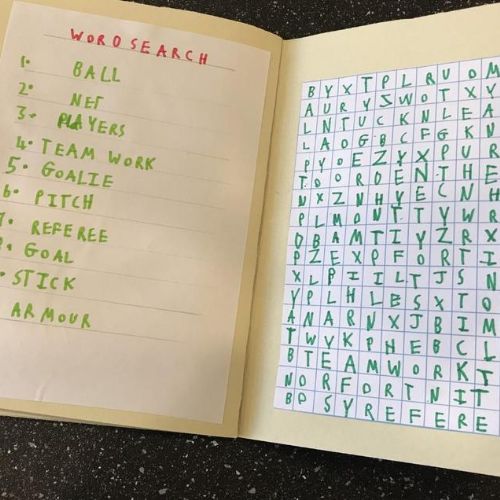 WORDSEARCH
1. BALL
2. NET
3. PLAYERS
4. TEAM WORK
5. GOALIE
6. PITCH
7. REFEREE
. GOAL
. STICK
ARMOUR
B Y X T P L R U O M
A U R Y S W O T X Y
L N T U C K N L E A
L A O G B C F G K N
P V O E Z Y X P U R
T O O R O E N T H E
N X Z N H Y E C N H
P L M O N T T Y W R
O B A M T I Y Z R X
P Z E X P F O R T I
X L P I I L T J S N
Y P L H L E S X T O
A N A R N X J B I M
T W V K P H E B C L
B T E A M W O R K T
N O R F O R T N I T
B O S Y R E F E R E